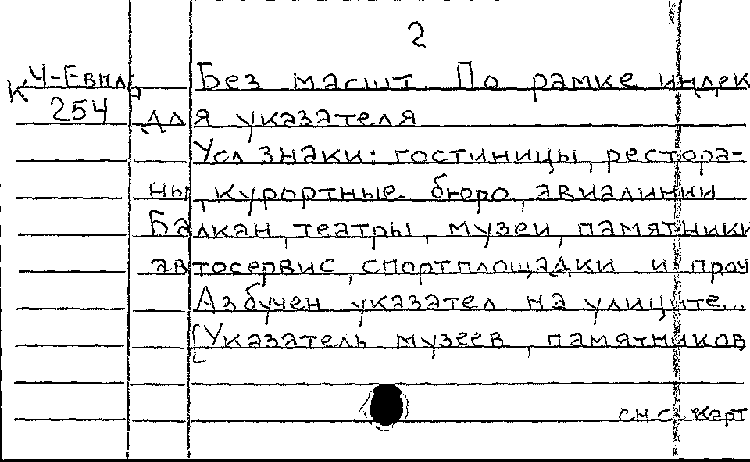 2
К Ч-Евиль Без масшт По рамке индек
254 для указателя
Усл знаки: гостиницы, рестора-
ны, курортные бюро, авиалинии
Балкан, театры, музеи, памятники
автосервис, спортплощадки и проч
Азбучен указател на улиците..
[Указатель музеев, памятников
см.с. карт